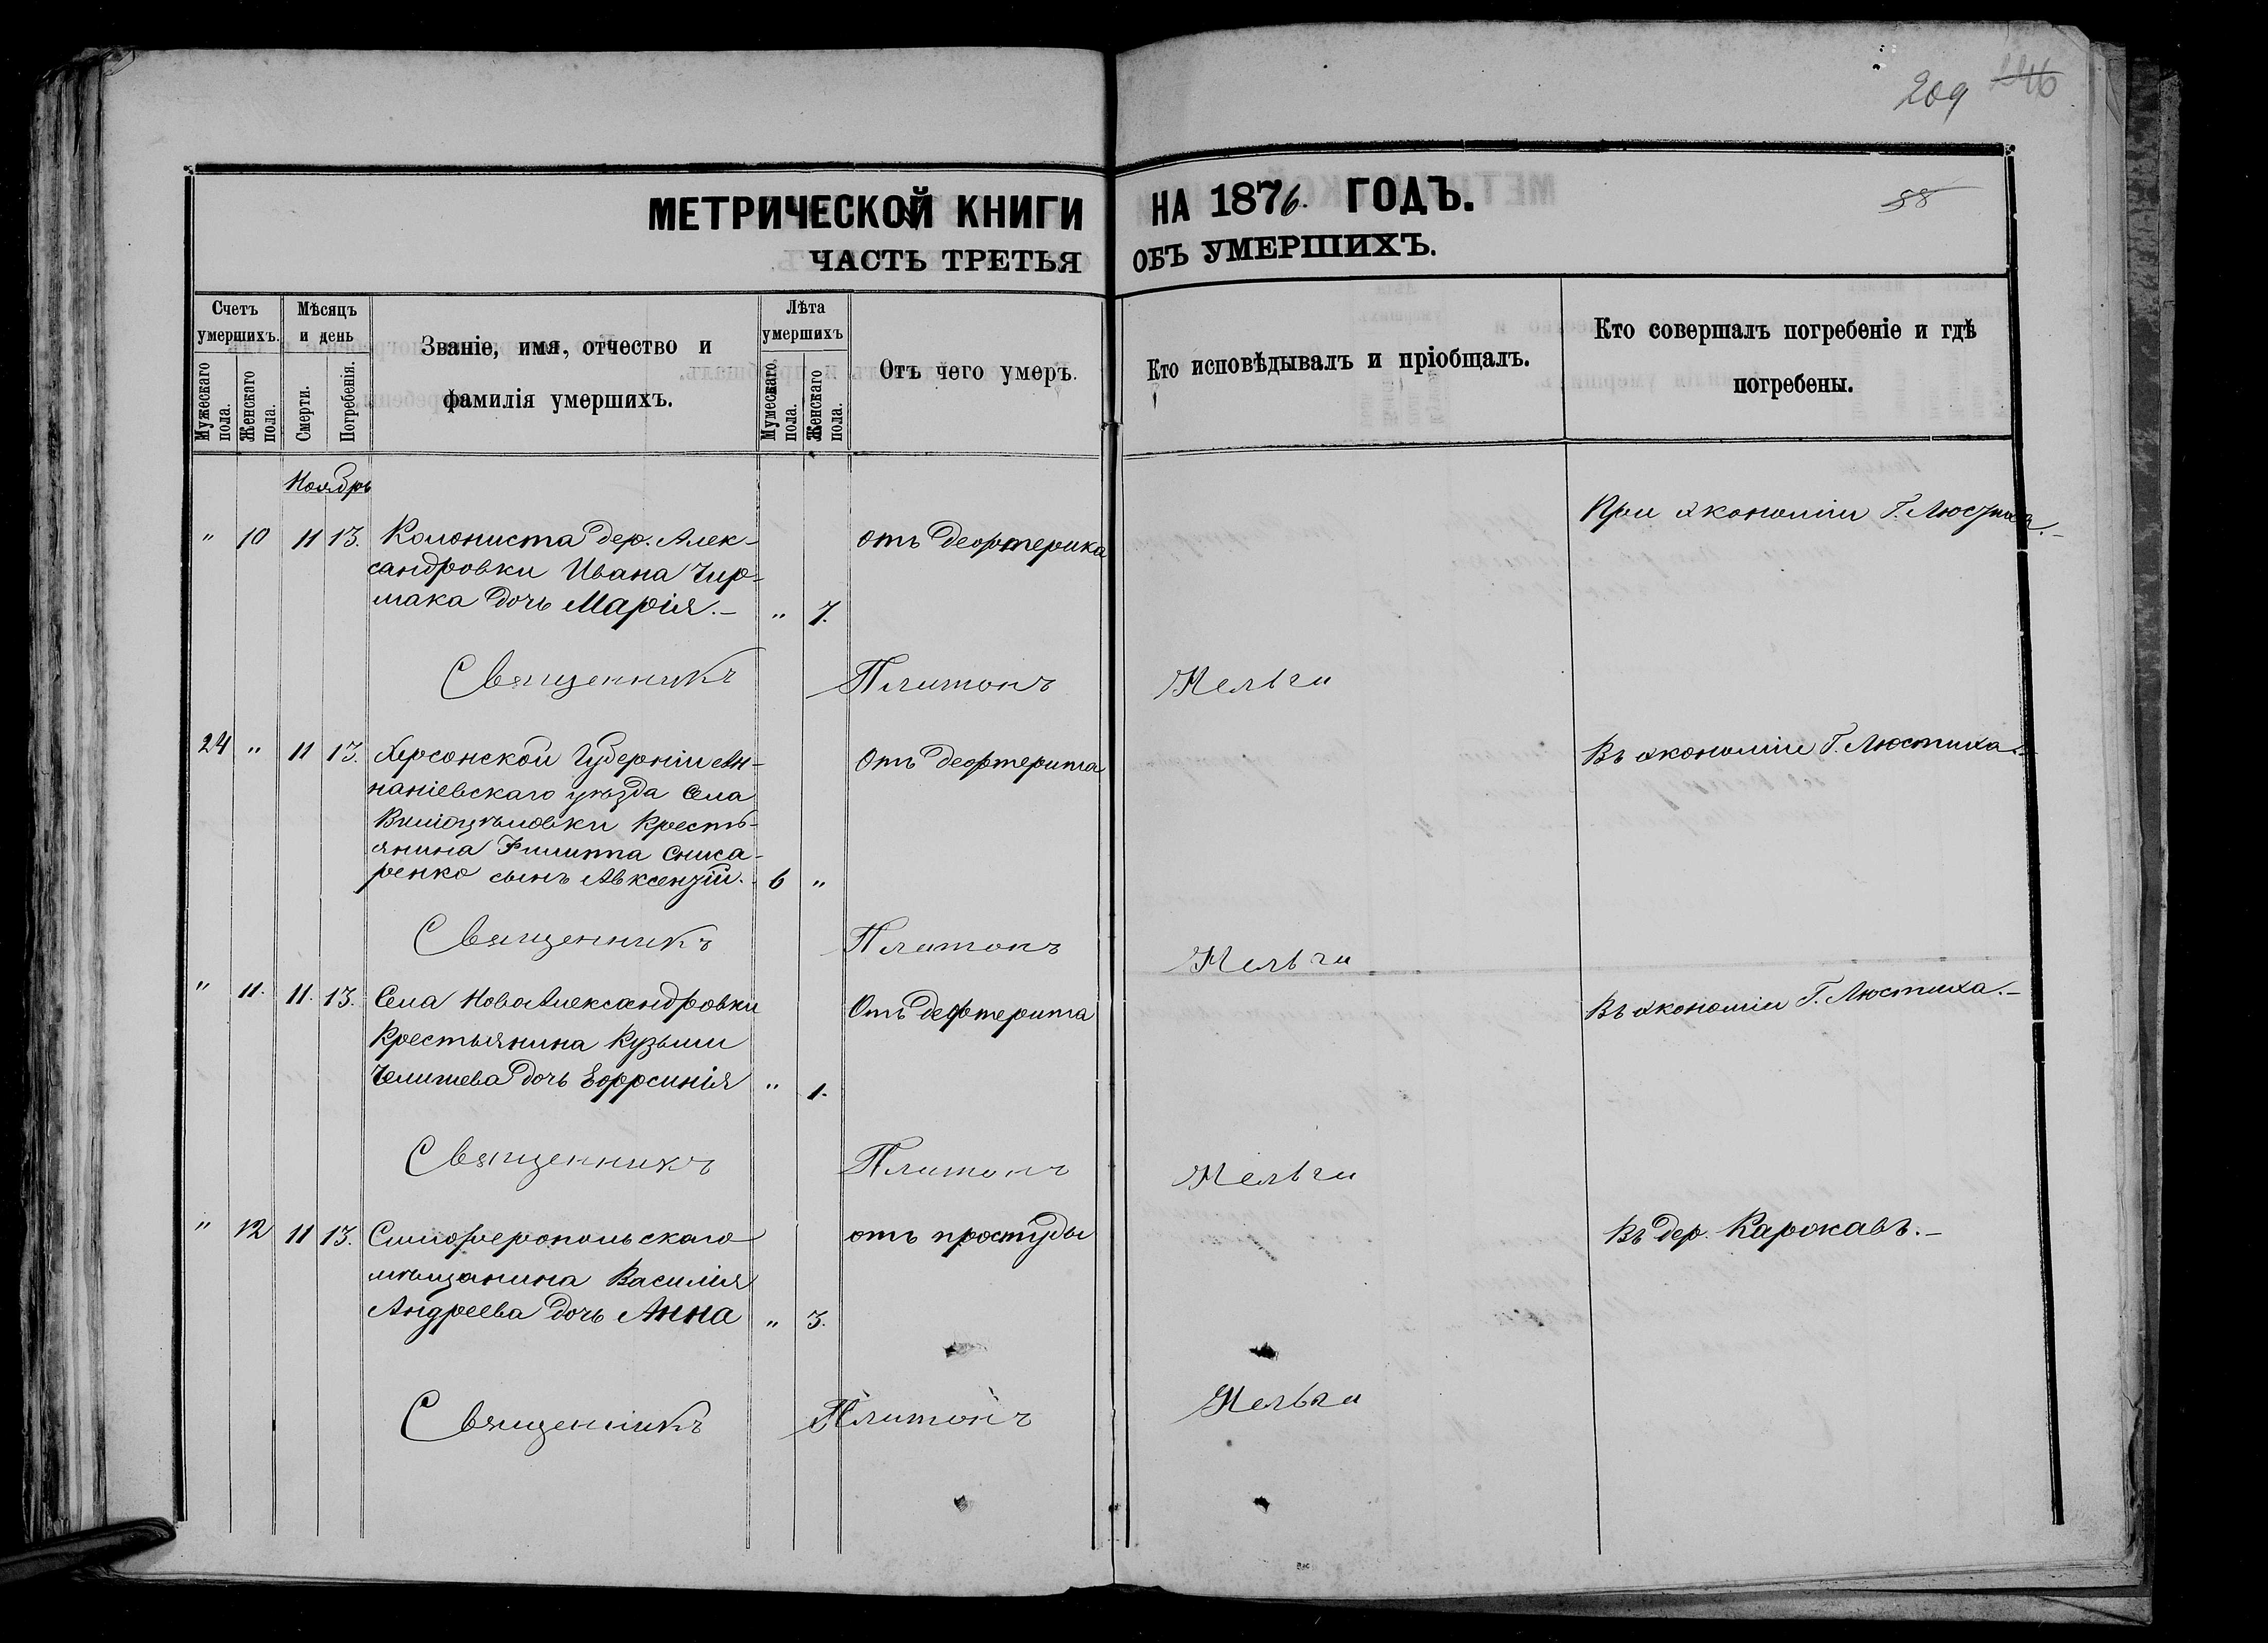 209 246
МЕТРИЧЕСКОЙ КНИГИ НА 1876. ГОДЪ.
58
ЧАСТЬ ТРЕТЬЯ ОБЪ УМЕРШИХЪ.
Счетъ умершихъ.
Мужескаго пола.
Женскаго пола.
Мѣсяцъ и день
Смерти.
Погребенія.
Званіе, имя, отчество и
фамилія умершихъ.
Лѣта умершихъ
Мужескаго пола.
Женскаго пола.
Отъ чего умеръ.
Кто исповѣдывалъ и пріобщалъ.
Кто совершалъ погребеніе и гдѣ
погребены.
Ноябрь
" 10 11 13. Колониста дер. Алек- отъ дефтерика При экономіи Г. Люстиха.-
сандровки Ивана Чир-
мака дочь Марія.- " 7.
Священникъ Платонъ
24 " 11 13. Херсонской Губерніи Ан- Отъ дефтерита Въ экономіи Г. Люстиха.-
наніевскаго уѣзда Села
Кресть-
янина Филиппа Сниса-
ренко сынъ Авксентій. 6 "
Священникъ Платонъ
" 11. 11. 13. Села НовоАлександровки Отъ дефтерита Въ экономіи Г. Люстиха.-
Крестьянина Кузьми
дочь Ефросинія " 1.
Священникъ Платонъ
" 12 11 13. Симферопольскаго отъ простуды Въ дер. Карокавъ.-
мѣщанина Василія
Андреева дочь Анна " 3.
Священникъ Платонъ